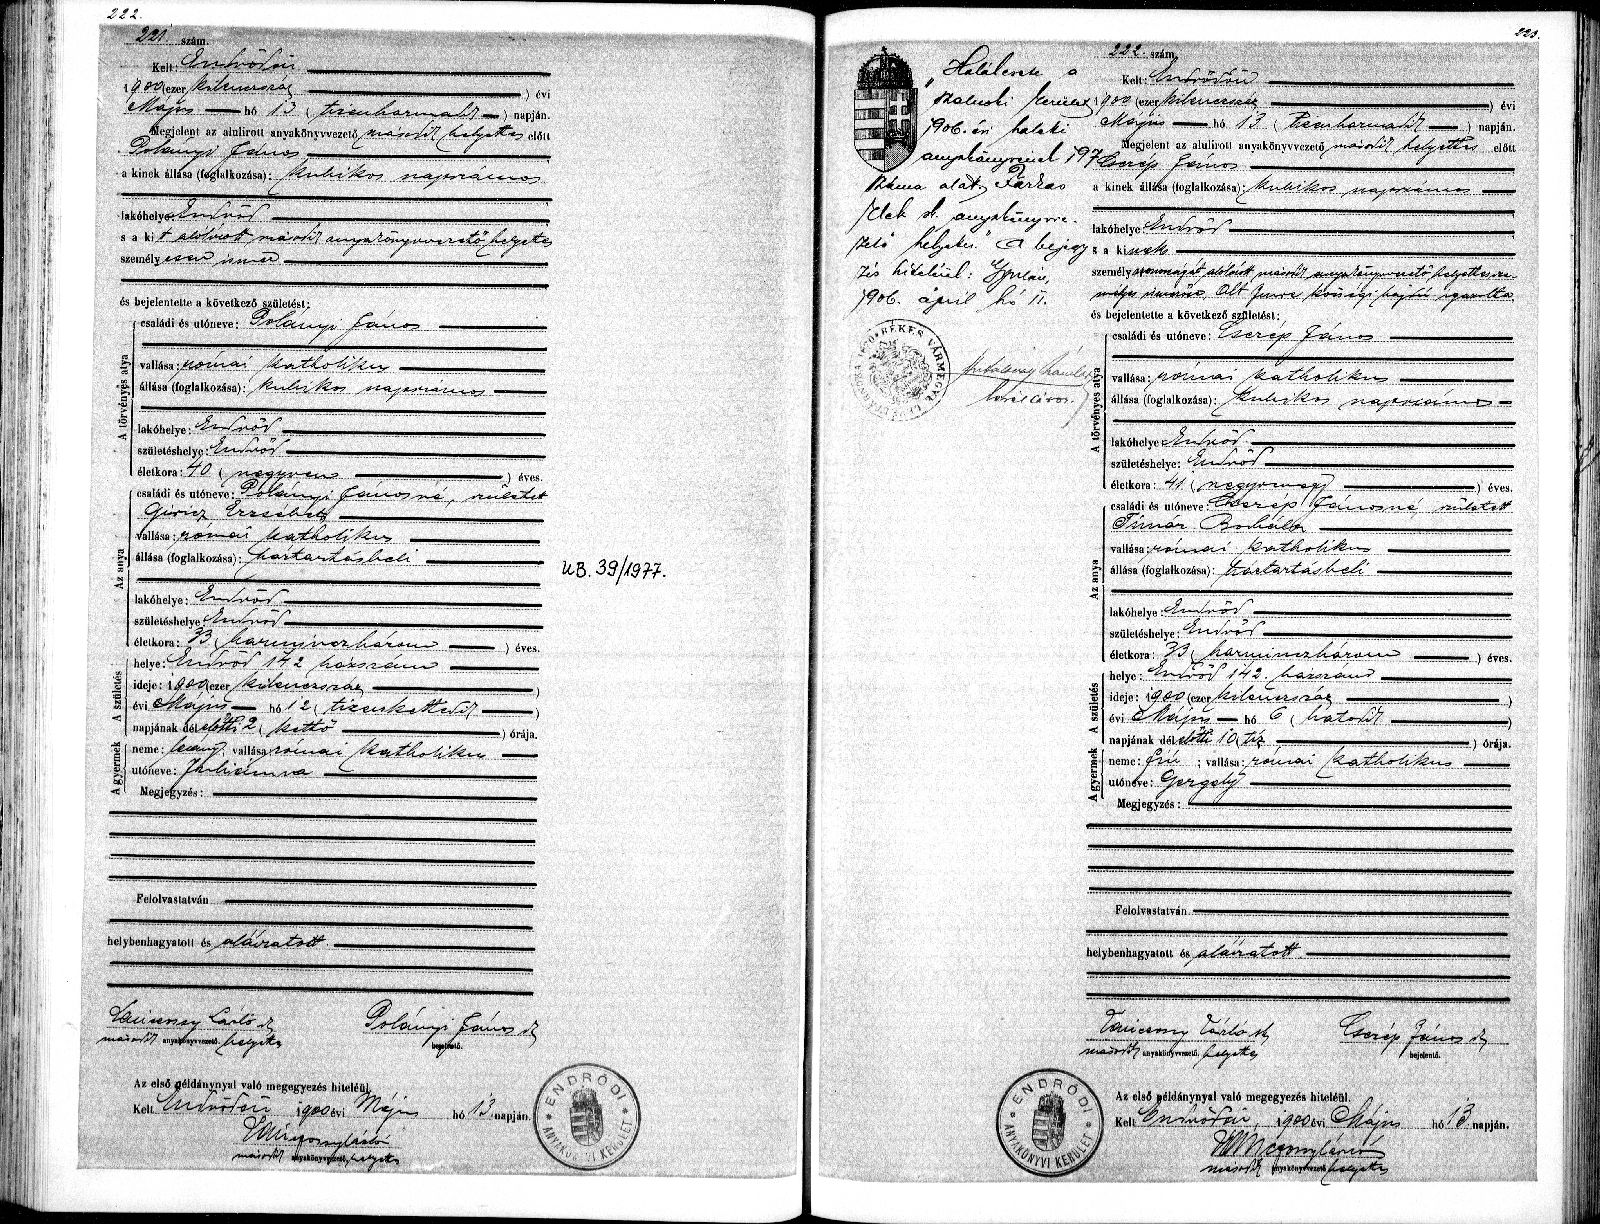 222.
221. szám.
Kelt: Endrődön
1900 (ezer kilencszáz ) évi
Május hó 13 ( tizenharmadik ) napján.
Megjelent az alulirott anyakönyvvezető második helyettes előtt
Polányi János
a kinek állása (foglalkozása): kubikos napszámos
lakóhelye: Endrőd
s a kit alólirott második anyakönyvvezető helyettes
személyesen ismer
és bejelentette a következő születést:
A törvényes atya
családi és utóneve: Polányi János
vallása: római katholikus
állása (foglalkozása): kubikos napszámos
lakóhelye: Endrőd
születéshelye: Endrőd
életkora: 40 ( negyven ) éves.
Az anya
családi és utóneve: Polányi Jánosné, született
Giricz Erzsébet
vallása: római katholikus
állása (foglalkozása): háztartásbeli
lakóhelye: Endrőd
születéshelye Endrőd
életkora: 33 ( harminczhárom ) éves.
A születés
helye: Endrőd 142 házszám
ideje: 1900 (ezer kilencszáz )
évi Május hó 12 ( tizenkettedik )
napjának délelőtti 2 ( kettő ) órája.
A gyermek
neme: leány; vallása: római katholikus
utóneve: Julianna
Megjegyzés:
Felolvastatván
helybenhagyatott és aláiratott.
második anyakönyvvezető helyettes
Polányi János sk
bejelentő.
Az első példánynyal való megegyezés hiteléül.
Kelt Endrődön 1900 évi Május hó 13 napján.
második anyakönyvvezető helyettes
ENDRŐDI ANYAKÖNYVI KERÜLET
UB. 39/1977.
223.
"Halálesete a
kerület
1906. évi halotti
anyakönyvének 197
száma alatt. Farkas
Elek sk. anyakönyvve-
zető helyettes." A bejegy-
zés hiteléül: Gyulán,
1906. április hó 11.
BÉKÉS VÁRMEGYE
222. szám.
Kelt: Endrődön
1900 (ezer kilencszáz ) évi
Május hó 13 ( tizenharmadik ) napján.
Megjelent az alulirott anyakönyvvezető második helyettes előtt
Cserép János
a kinek állása (foglalkozása): kubikos napszámos
lakóhelye: Endrőd
s a kinek
személyazonosságát alólirott második anyakönyvvezető helyettes sze-
mélyes ismerőse Olt Imre községi hajdú igazolta.
és bejelentette a következő születést:
A törvényes atya
családi és utóneve: Cserép János
vallása: római katholikus
állása (foglalkozása): kubikos napszámos
lakóhelye: Endrőd
születéshelye: Endrőd
életkora: 41 ( negyvenegy ) éves.
Az anya
családi és utóneve: Cserép Jánosné, született
Timár Borbála
vallása: római katholikus
állása (foglalkozása): háztartásbeli
lakóhelye Endrőd
születéshelye: Endrőd
életkora: 33 ( harminczhárom ) éves.
A születés
helye: Endrőd 142. házszám
ideje: 1900 (ezer kilencszáz )
évi Május hó 6 ( hatodik )
napjának délelőtti 10 ( tíz ) órája.
A gyermek
neme: fiú ; vallása: római katholikus
utóneve: Gergely
Megjegyzés:
Felolvastatván.
helybenhagyatott és aláiratott.
második anyakönyvvezető helyettes
Cserép János sk
bejelentő.
Az első példánynyal való megegyezés hiteléül.
Kelt Endrődön, 1900 évi Május hó 13 napján.
második anyakönyvvezető helyettes
ENDRŐDI ANYAKÖNYVI KERÜLET